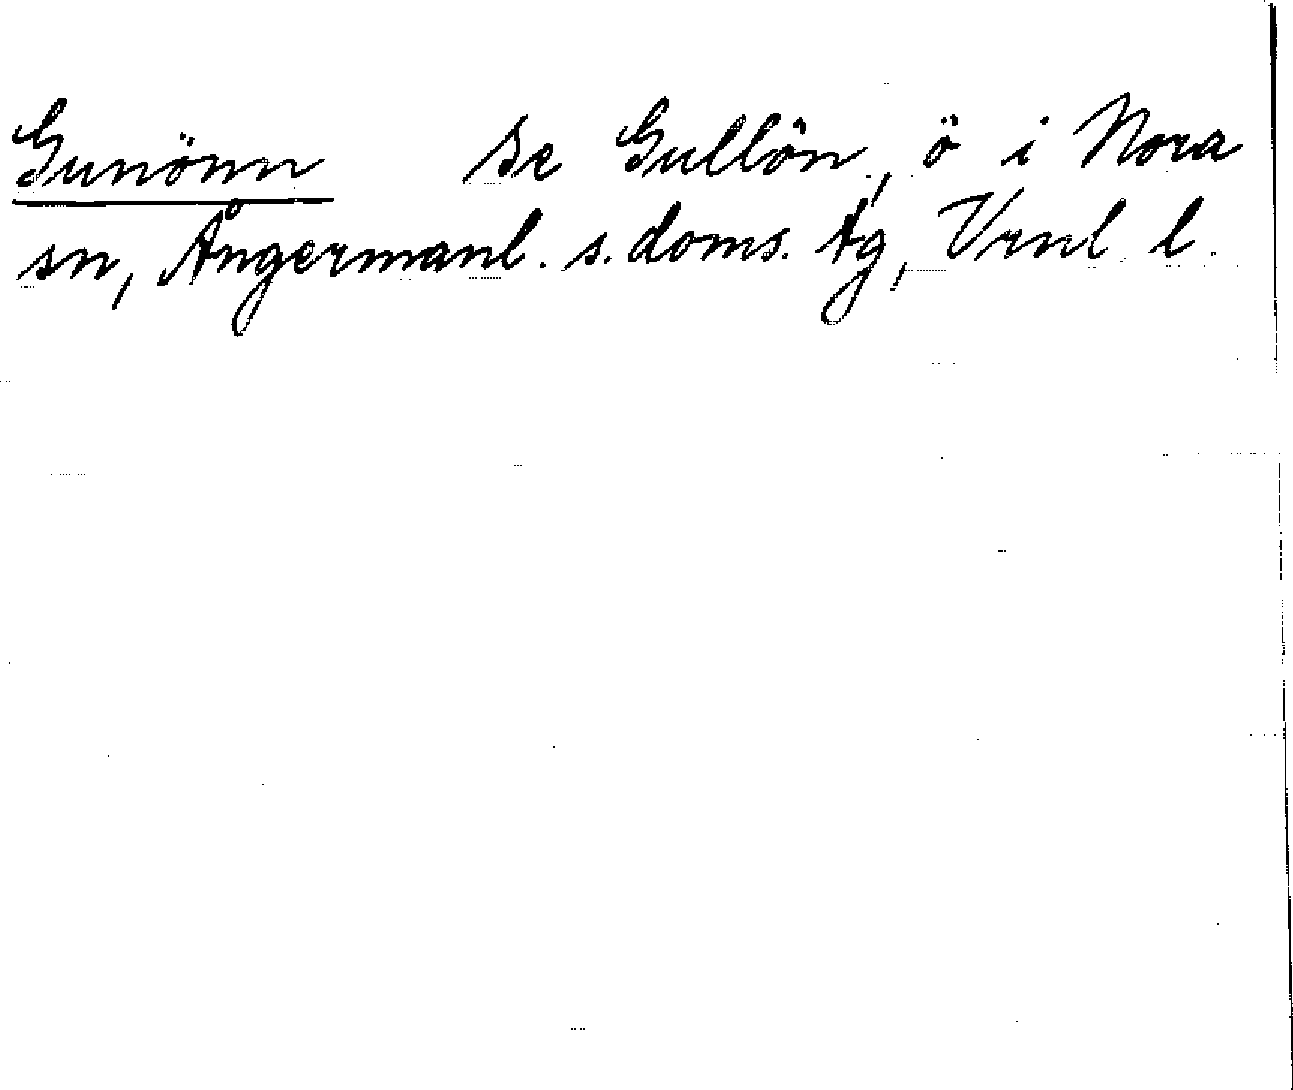 Gunönn se Gullön, ö i Nora
sn, Ångermanl. s. doms. tg, Vrnl l.